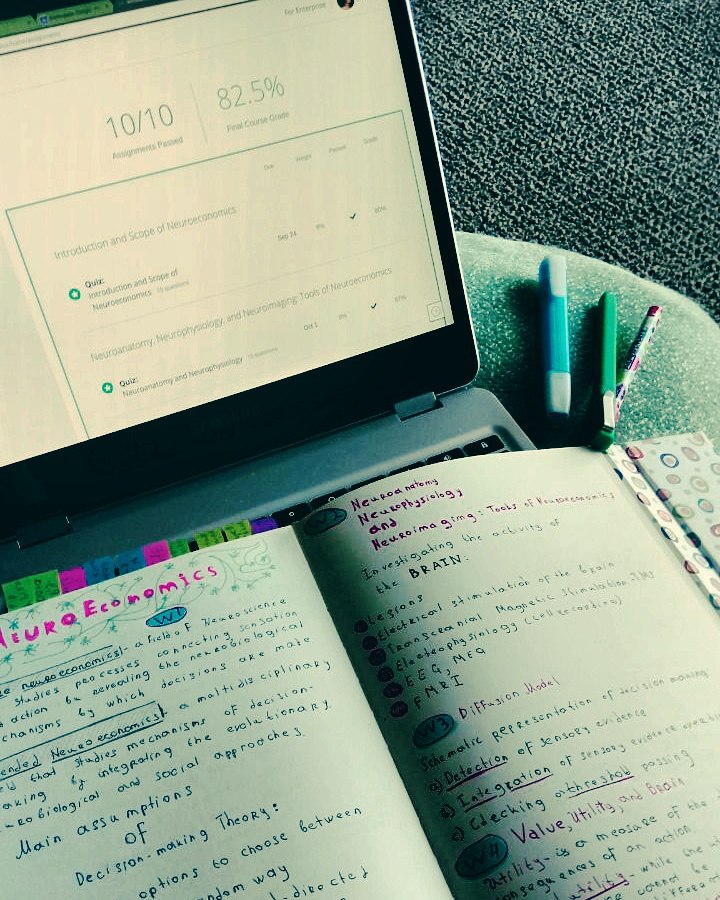 For Enterprise
10/10
Assignments Passed
82.5%
Final Course Grade
Due Weight Passed Grade
Introduction and Scope of Neuroeconomics
Quiz:
Introduction and Scope of
Neuroeconomics 10 questions
Sep 24
80%
Neuroanatomy, Neurophysiology, and Neuroimaging Tools of Neuroeconomics
Quiz:
Neuroanatomy and Neurophysiology
Oct 1
87%
NEUROECONOMICS
W1
neuroeconomics - a field of Neuroscience
studies processes connecting sensation
d action by revealing the neurobiological
chanisms by which decisions are made
ended Neuroeconomics - a multidisciplinary
ld that studies mechanisms of decision-
aking by integrating the evolutionary,
urobiological and social approaches.
Main assumptions
of
Decision-making Theory:
options to choose between
ndom way
l-directed
W2
Neuroanatomy
Neurophysiology
and
Neuroimagimg: Tools of Neuroeconomics
Investigating the activity of
the BRAIN:
Lesions
Electrical stimulation of the brain
Transcranial Magnetic Stimulation TMS
Electophysiology (cell recording)
EEG, MEG
FMRI
W3 Diffusion Model
Schematic representation of decision making
a) Detection of sensory evidence
b) Integration of sensory evidence
c) Cdecking a threshold passing
W4 Value, Utility, and Brain
Utility- is a measure of the
onsequences of an action.
utility- while the
cannot be